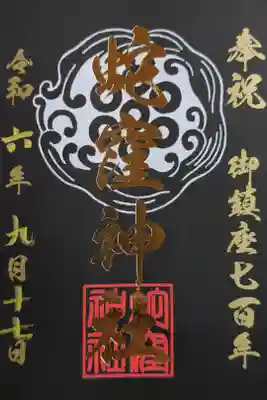 奉祝 御鎮座七百年
蛇窪神社
令和六年九月十七日
蛇窪神社